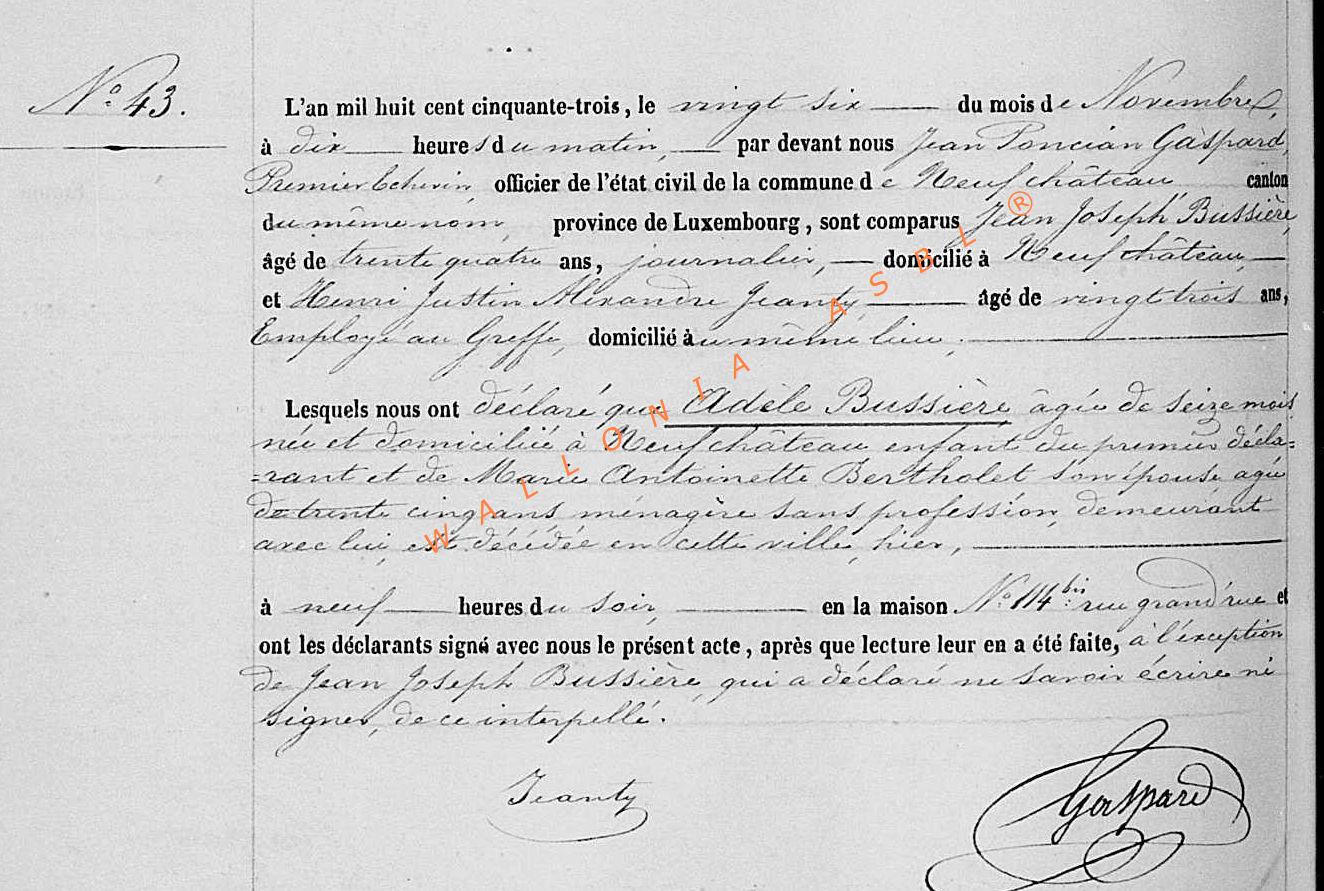 N.o 43.
L'an mil huit cent cinquante-trois, le vingt six du mois de Novembre,
à dix heures du matin, par devant nous Jean Poncian Gaspard,
Premier Echevin officier de l'état civil de la commune de Neufchâteau, canton
du même nom, province de Luxembourg, sont comparus Jean Joseph Bussière,
âgé de trente quatre ans, journalier, domicilié à Neufchâteau,
et Henri Justin Alexandre Jeanty, âgé de vingt trois ans,
Employé au Greffe, domicilié au même lieu,
Lesquels nous ont déclaré que Adèle Bussière âgée de seize mois
née et domiciliée à Neufchâteau enfant du premier décla=
=rant et de Marie Antoinette Bertholet son épouse agée
de trente cinq ans ménagère sans profession, demeurant
avec lui, est décédée en cette ville, hier,
à neuf heures du soir, en la maison N.o 114 bis rue grand'rue et
ont les déclarants signé avec nous le présent acte, après que lecture leur en a été faite, à l'exception
de Jean Joseph Bussière, qui a déclaré ne savoir écrire ni
signer, de ce interpellé.
Jeanty
Gaspard
WALLONIA ASBL ®